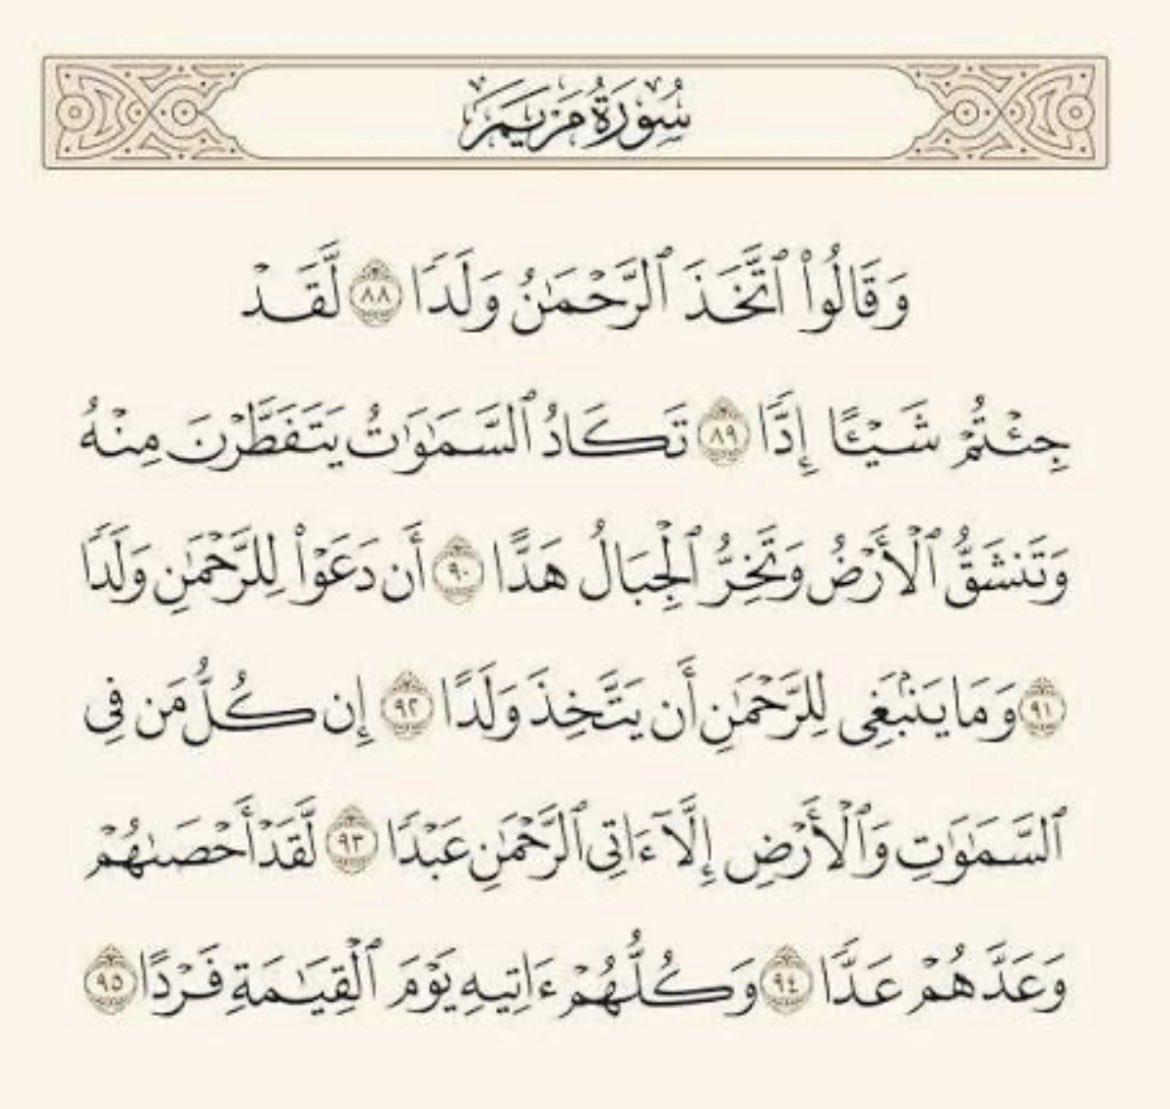 سُورَةُ مَرْيَمَ
وَقَالُوا۟ ٱتَّخَذَ ٱلرَّحْمَـٰنُ وَلَدًا ٨٨ لَّقَدْ
جِئْتُمْ شَيْـًٔا إِدًّا ٨٩ تَكَادُ ٱلسَّمَـٰوَٰتُ يَتَفَطَّرْنَ مِنْهُ
وَتَنشَقُّ ٱلْأَرْضُ وَتَخِرُّ ٱلْجِبَالُ هَدًّا ٩٠ أَن دَعَوْا۟ لِلرَّحْمَـٰنِ وَلَدًا
٩١ وَمَا يَنۢبَغِى لِلرَّحْمَـٰنِ أَن يَتَّخِذَ وَلَدًا ٩٢ إِن كُلُّ مَن فِى
ٱلسَّمَـٰوَٰتِ وَٱلْأَرْضِ إِلَّآ ءَاتِى ٱلرَّحْمَـٰنِ عَبْدًا ٩٣ لَّقَدْ أَحْصَىٰهُمْ
وَعَدَّهُمْ عَدًّا ٩٤ وَكُلُّهُمْ ءَاتِيهِ يَوْمَ ٱلْقِيَـٰمَةِ فَرْدًا ٩٥